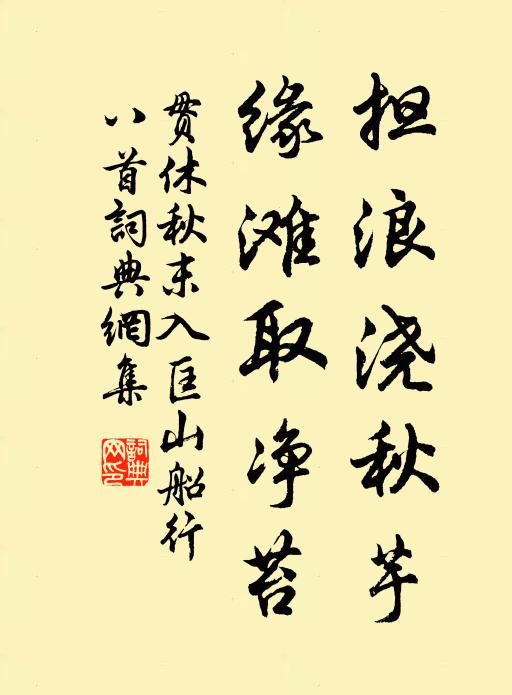 担浪浇秋芋
缘滩取净苔
贯休秋末入匡山船行
八首詞典網集
詞典網印